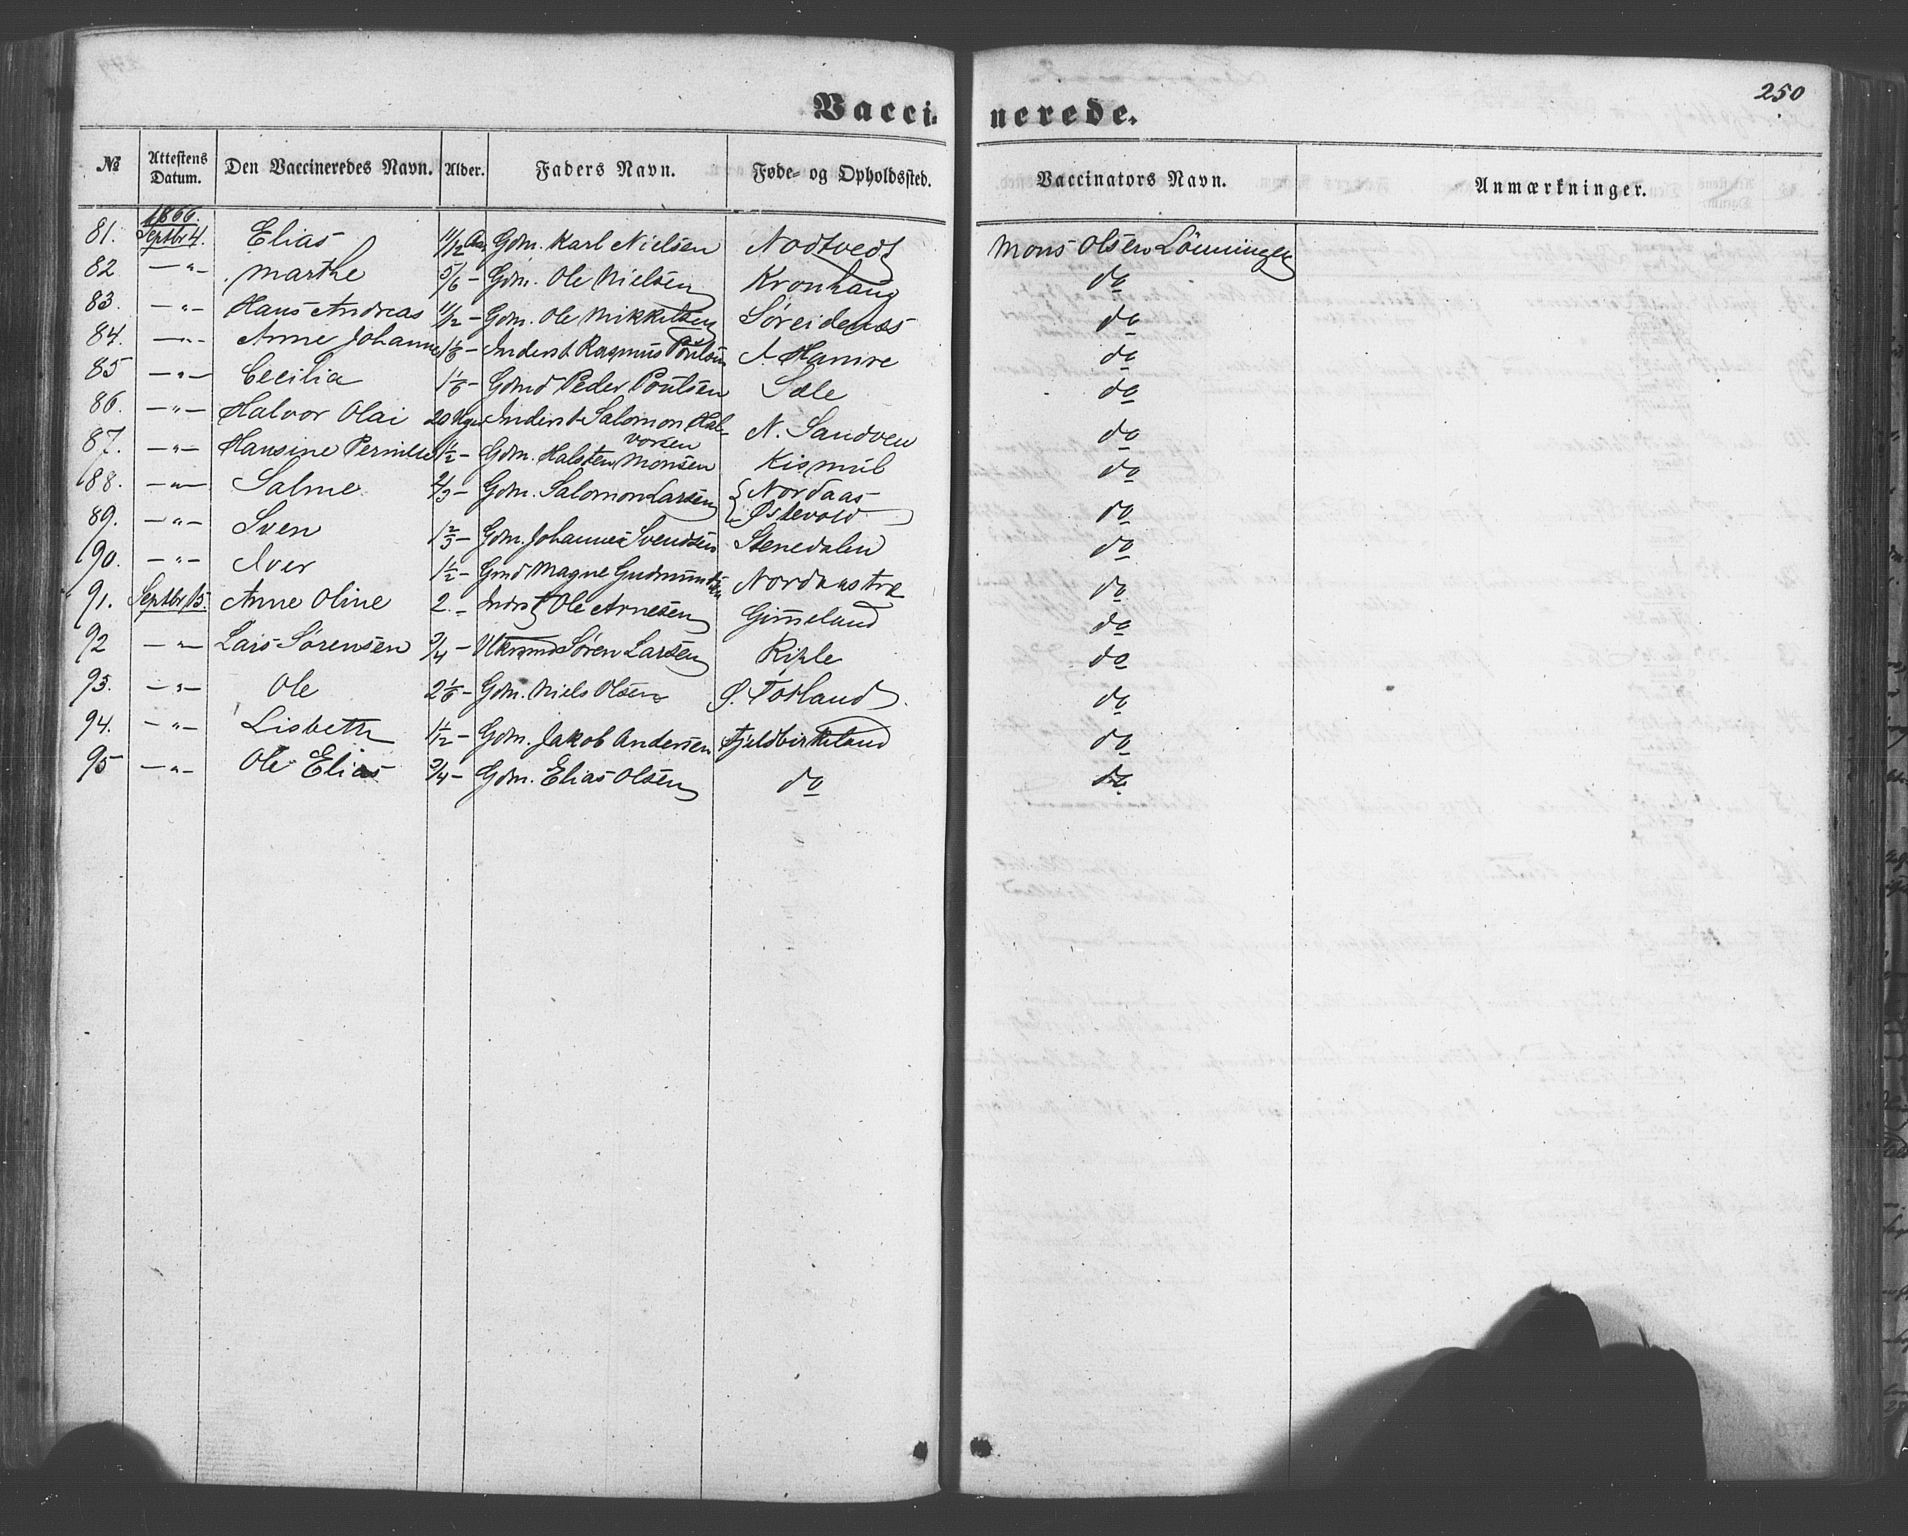 250
Vaccinerede.
№ Attestens Datum. Den Vaccineredes Navn. Alder. Faders Navn. Føde- og Opholdssted. Vaccinators Navn. Anmærkninger.
1866.
81. Septbr 4. Elias 11/12 Aar Gdm. Karl Nielsen Nodtvedt Mons Olsen Lönningen
82 —"— Marthe 5/6 — Gdm. Ole Nielsen Kronhaug do
83. —"— Hans Andreas 11/12 — Gdm. Ole Mikkelsen Söreidenæs do
84. —"— Anne Johanne 1 1/6 — Inderst Rasmus Poulsen N. Hamre do
85 —"— Cecilia 1 1/6 — Gdmd Peder Poulsen Sæle do
86. —"— Halvor Olai 20 Uger Inderst Salomon Hal-
vorsen N. Sandven do
87. —"— Hansine Pernille 1 1/2 — Gdm. Halsten Monsen Kismul do
88. —"— Salme 2/3 — Gdm. Salomon Larsen { Nordaas
Østevold do
89. —"— Sven 1 2/3 — Gdm. Johannes Svendsen Stenedalen do
90. —"— Iver 1 1/2 — Gmd Magne Gudmundsen Nordanstræ do
91. Septbr 15. Anne Oline 2. — Indrst Ole Arnesen Gimeland do
92 —"— Lars Sørensen 3/4 — Søren Larsen Riple do
93. —"— Ole 2 1/6 — Gdm. Niels Olsen Ø. Totland do
94. —"— Lisbeth 1 1/12 — Gdm. Jakob Andersen Fjeldbirkeland do
95 —"— Ole Elias 3/4 — Gdm. Elias Olsen do do